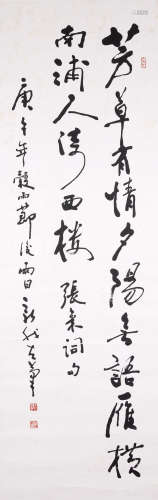 芳草有情夕陽無語雁橫
南浦人倚西樓 張耒詞句
庚午年穀雨節後兩日